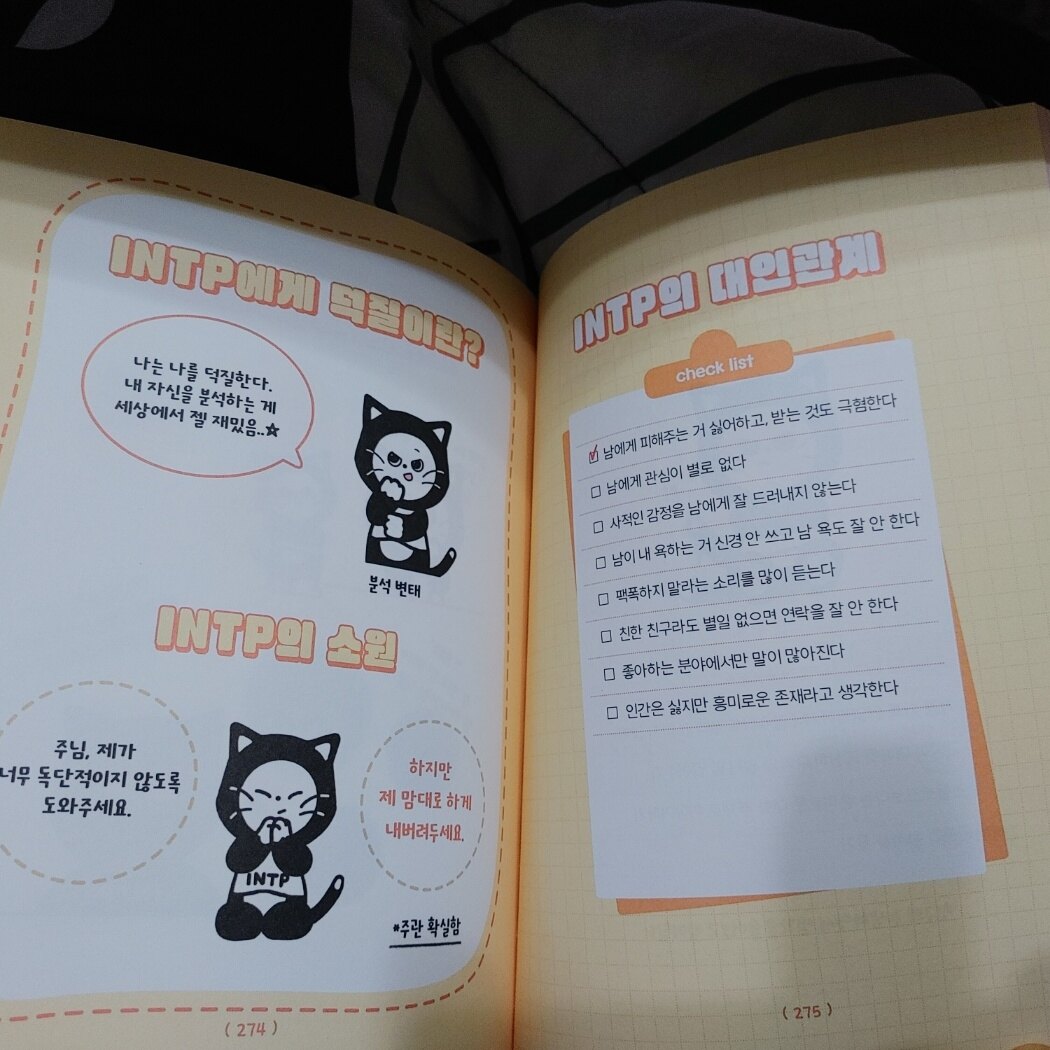 INTP에게 덕질이란?
나는 나를 덕질한다.
내 자신을 분석하는 게
세상에서 젤 재밌음..☆
분석 변태
INTP의 소원
주님, 제가
너무 독단적이지 않도록
도와주세요.
INTP
하지만
제 맘대로 하게
내버려두세요.
*주관 확실함
( 274 )
INTP의 대인관계
check list
남에게 피해주는 거 싫어하고, 받는 것도 극혐한다
남에게 관심이 별로 없다
사적인 감정을 남에게 잘 드러내지 않는다
남이 내 욕하는 거 신경 안 쓰고 남 욕도 잘 안 한다
팩폭하지 말라는 소리를 많이 듣는다
친한 친구라도 별일 없으면 연락을 잘 안 한다
좋아하는 분야에서만 말이 많아진다
인간은 싫지만 흥미로운 존재라고 생각한다
( 275 )